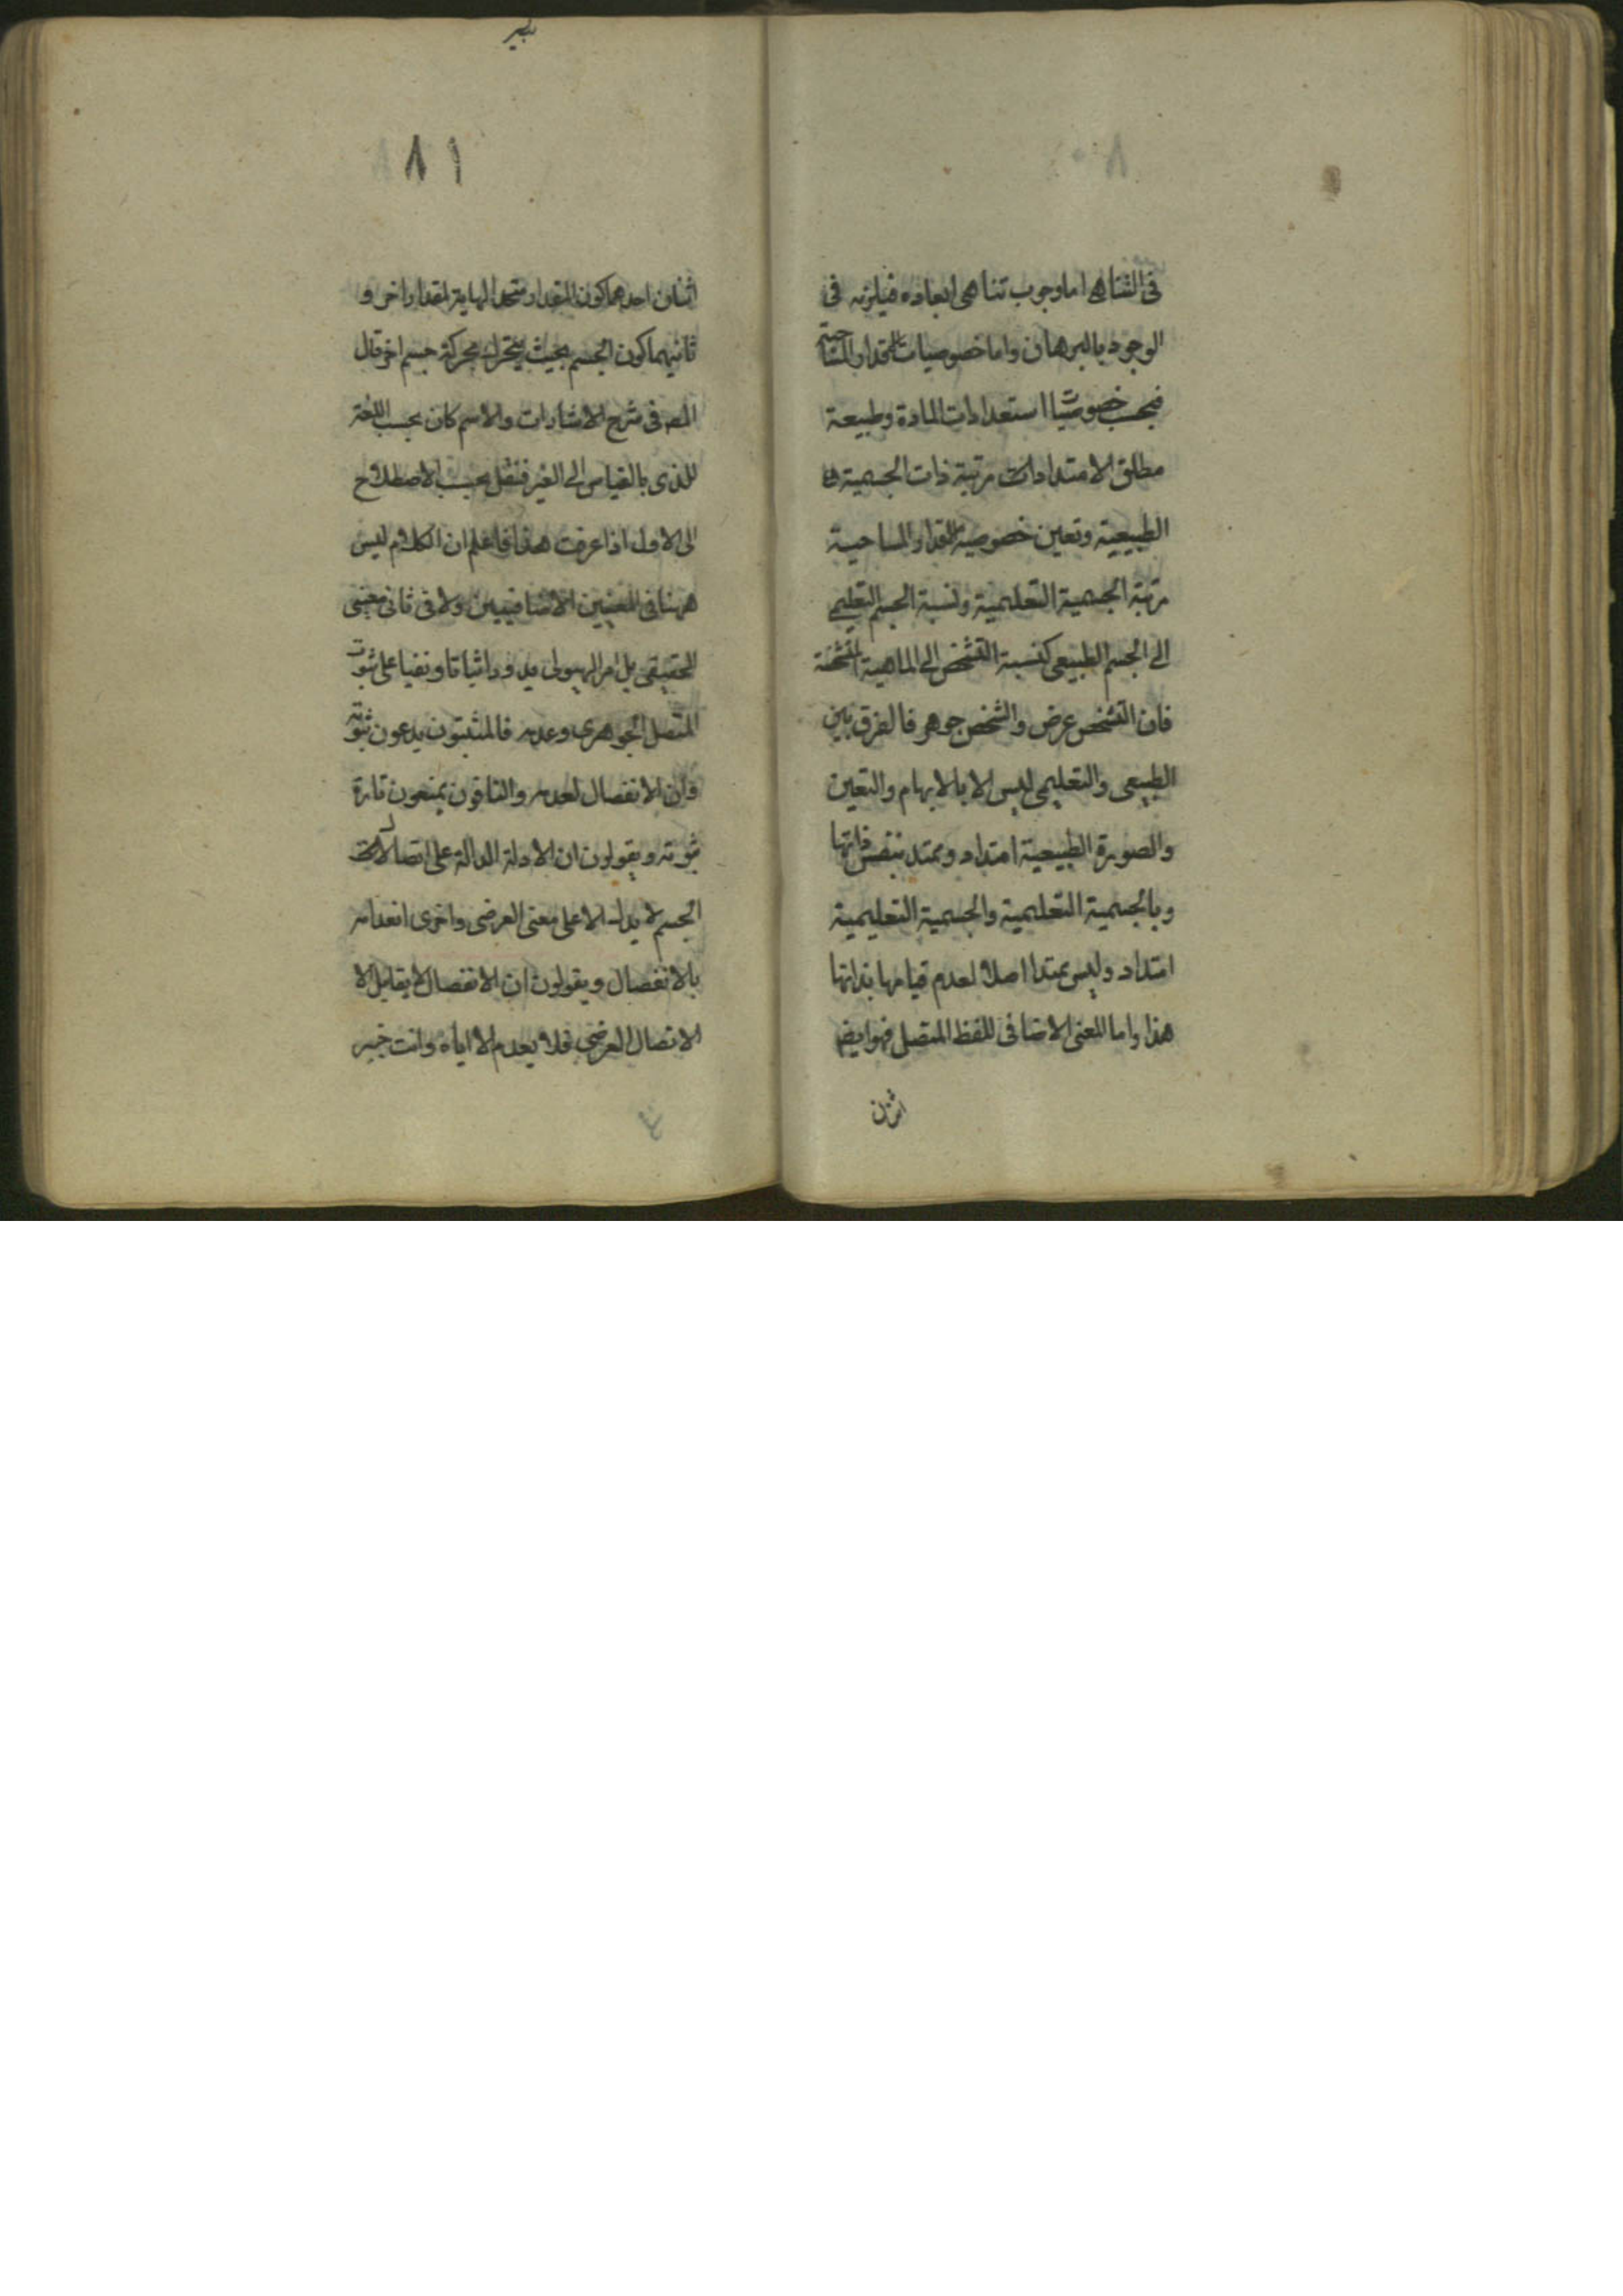 ٨٠
فى التناهى اما وجوب تناهى ابعاده فيلزمه فى
الوجود بالبرهان واما خصوصيات المقدار المساحية
فبحسب خصوصيات استعدادات المادة وطبيعة
مطلق الامتدادات مرتبة ذات الجسمية
الطبيعية وتعين خصوصية المقدار المساحية
مرتبة الجسمية التعليمية ونسبة الجسم التعليمى
الى الجسم الطبيعى كنسبة التشخص الى الماهية المشخصة
فان التشخص عرض والشخص جوهر فالفرق بين
الطبيعى والتعليمى ليس الا بالابهام والتعين
والصورة الطبيعية امتداد وممتد بنفس ذاتها
وبالجسمية التعليمية والجسمية التعليمية
امتداد وليس بمتدا اصلا لعدم قيامها بذاتها
هذا واما المعنى الاضافى للفظ المتصل فهو ايضا
اثنان
٨١
اثنان احدهما كون المقدار متحد النهاية لمقدار اخر و
ثانيهما كون الجسم بحيث يتحرك بحركة جسم اخر قال
المص فى شرح الاشارات والاسم كان بحسب اللغة
للذى بالقياس الى الغير فنقل بحسب الاصطلاح
الى الاول اذا عرفت هذا فاعلم ان الكلام ليس
ههنا فى المعنيين الاضافيين ولا فى ثانى معنيى
الحقيقى بل امر الهيولى يدور اثباتا ونفيا على ثبوت
المتصل الجوهرى وعدمه فالمثبتون يدعون ثبوته
وان الانفصال لعدمه والنافون يمنعون تارة
ثبوته ويقولون ان الادلة الدالة على اتصال
الجسم لا يدل الا على معنى العرضى واخرى انعدامه
بالانفصال ويقولون ان الانفصال لا يقابل الا
الاتصال العرضى فلا يعدم الا اياه وانت خبير